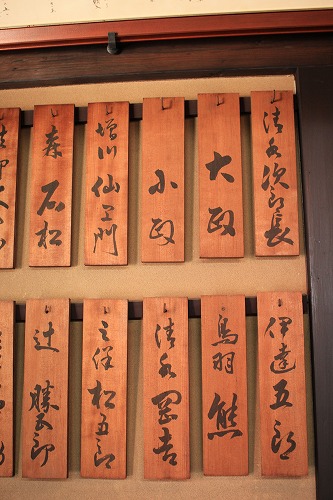 清水次郎長
大政
小政
増川仙右ヱ門
森石松
伊達五郎
鳥羽熊
清水岡吉
三保松五郎
辻勝五郎